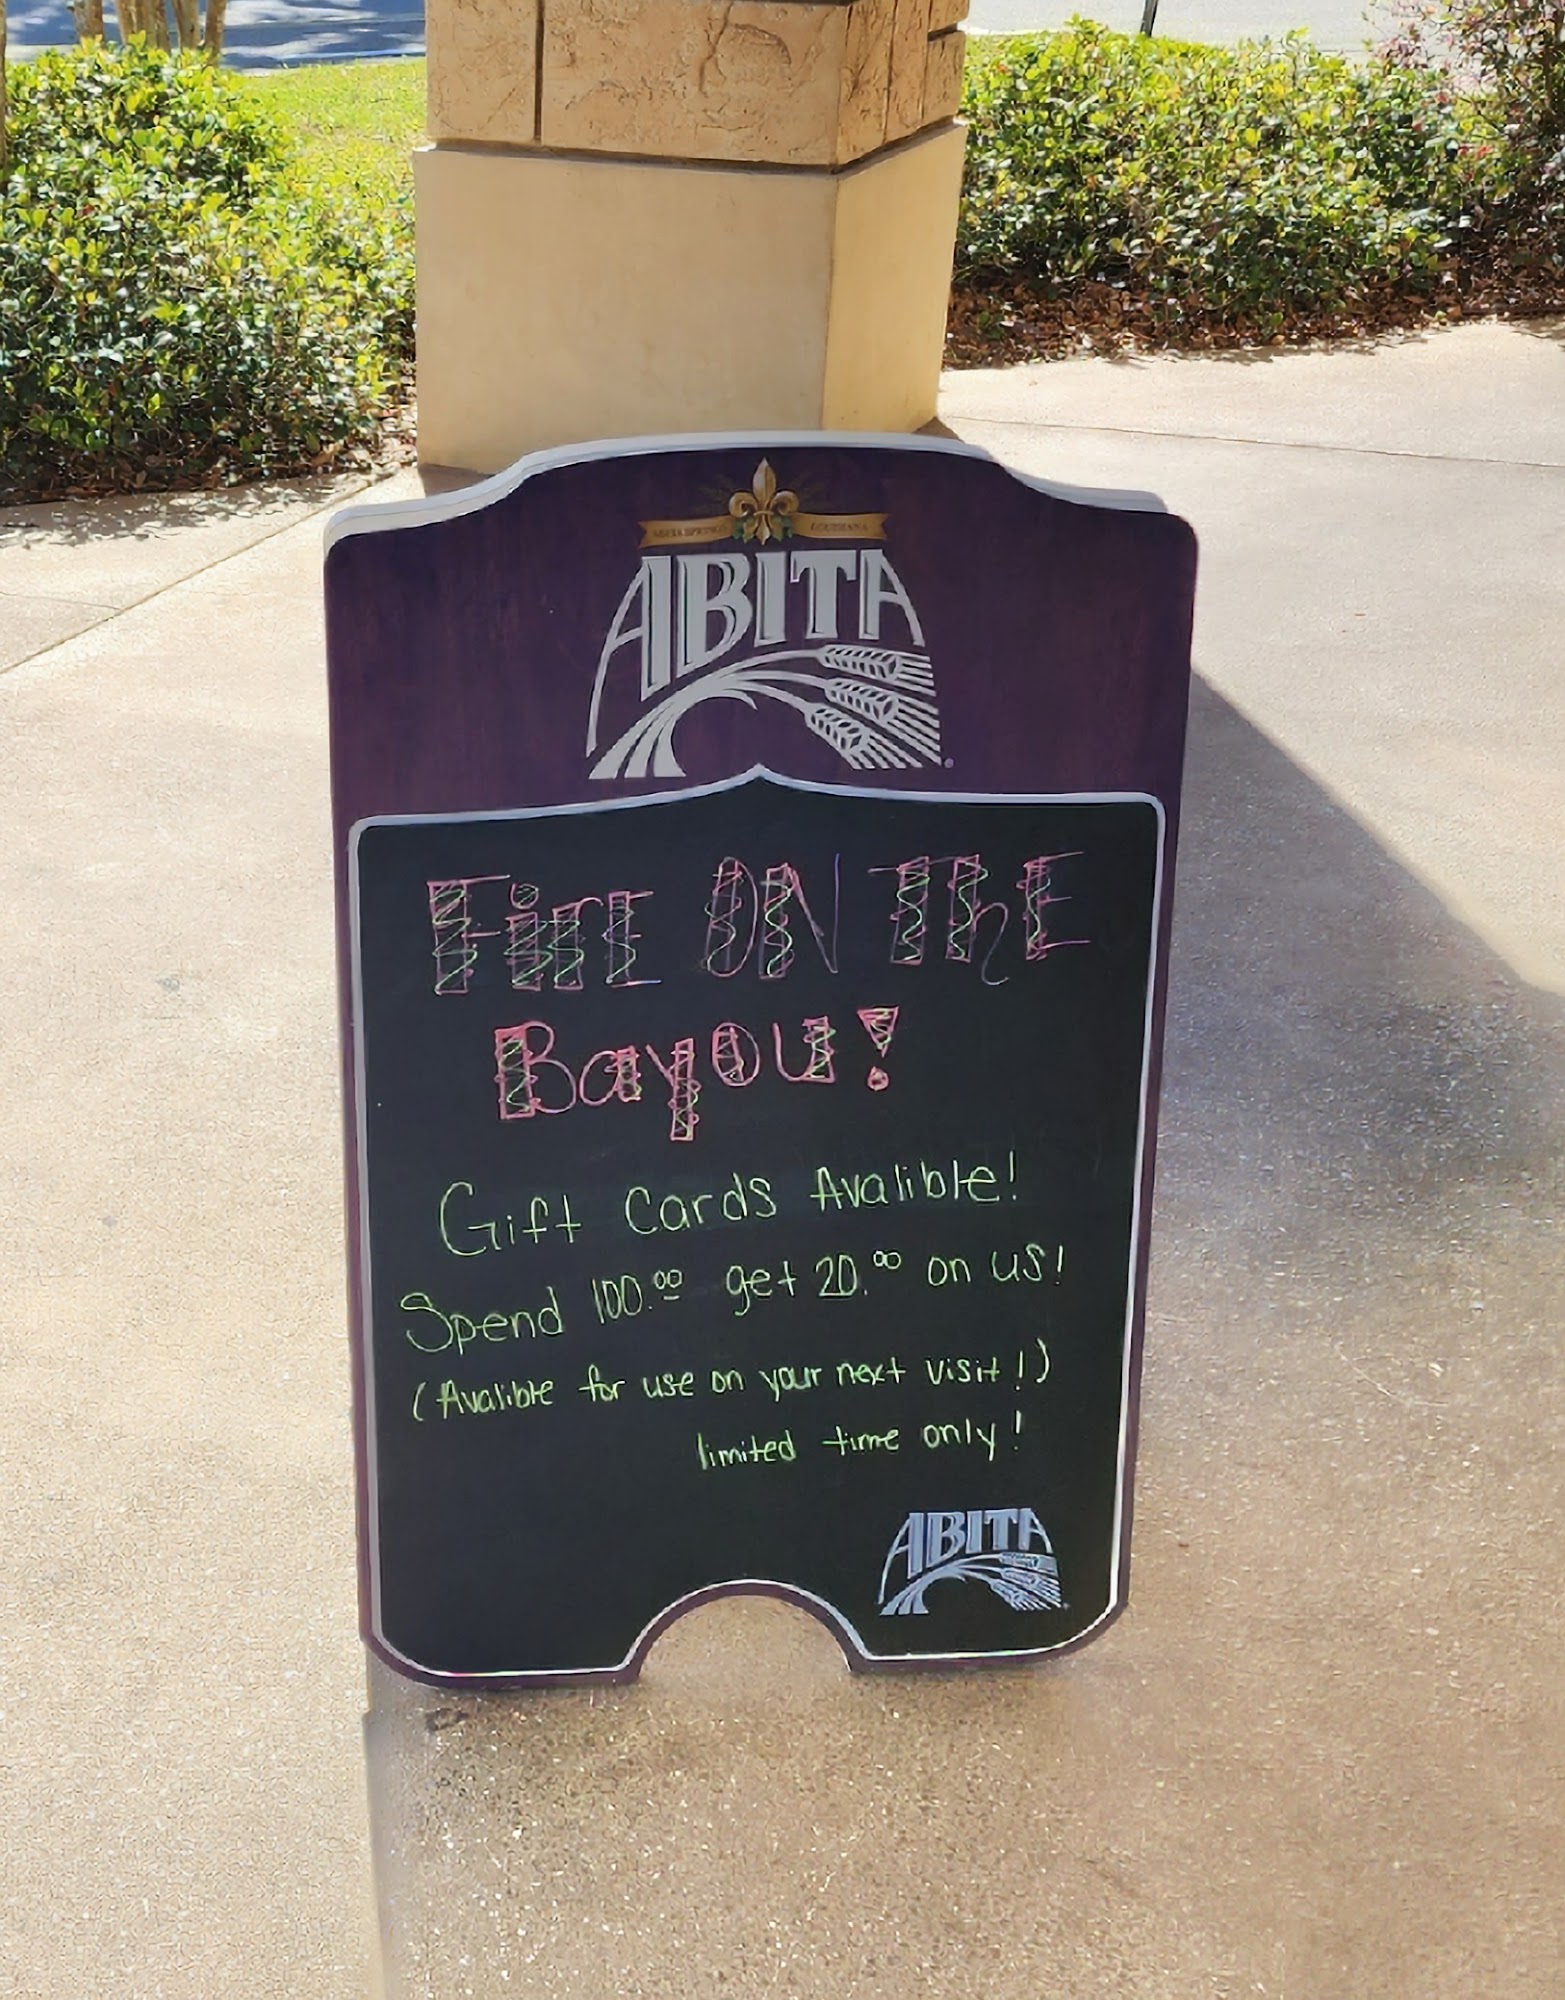 ABITA SPRINGS LOUISIANA
ABITA
FirE ON ThE
Bayou!
Gift Cards Avalible!
Spend 100.00 get 20.00 on us!
(Avalible for use on your next visit!)
limited time only!
ABITA